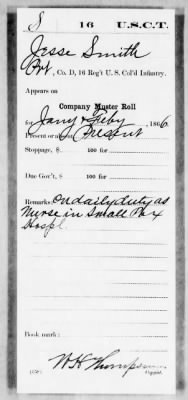 S | 16 | U.S.C.T.
Jesse Smith
Pvt, Co. D, 16 Reg't U. S. Col'd Infantry.
Appears on
Company Muster Roll
for Jany & Feby, 1866
Present or absent Present
Stoppage, $ 100 for
Due Gov't, $ 100 for
Remarks: On daily duty as
Nurse in Small Pox
Hospl.
Book mark:
W H Thompson
(358) Copyist.